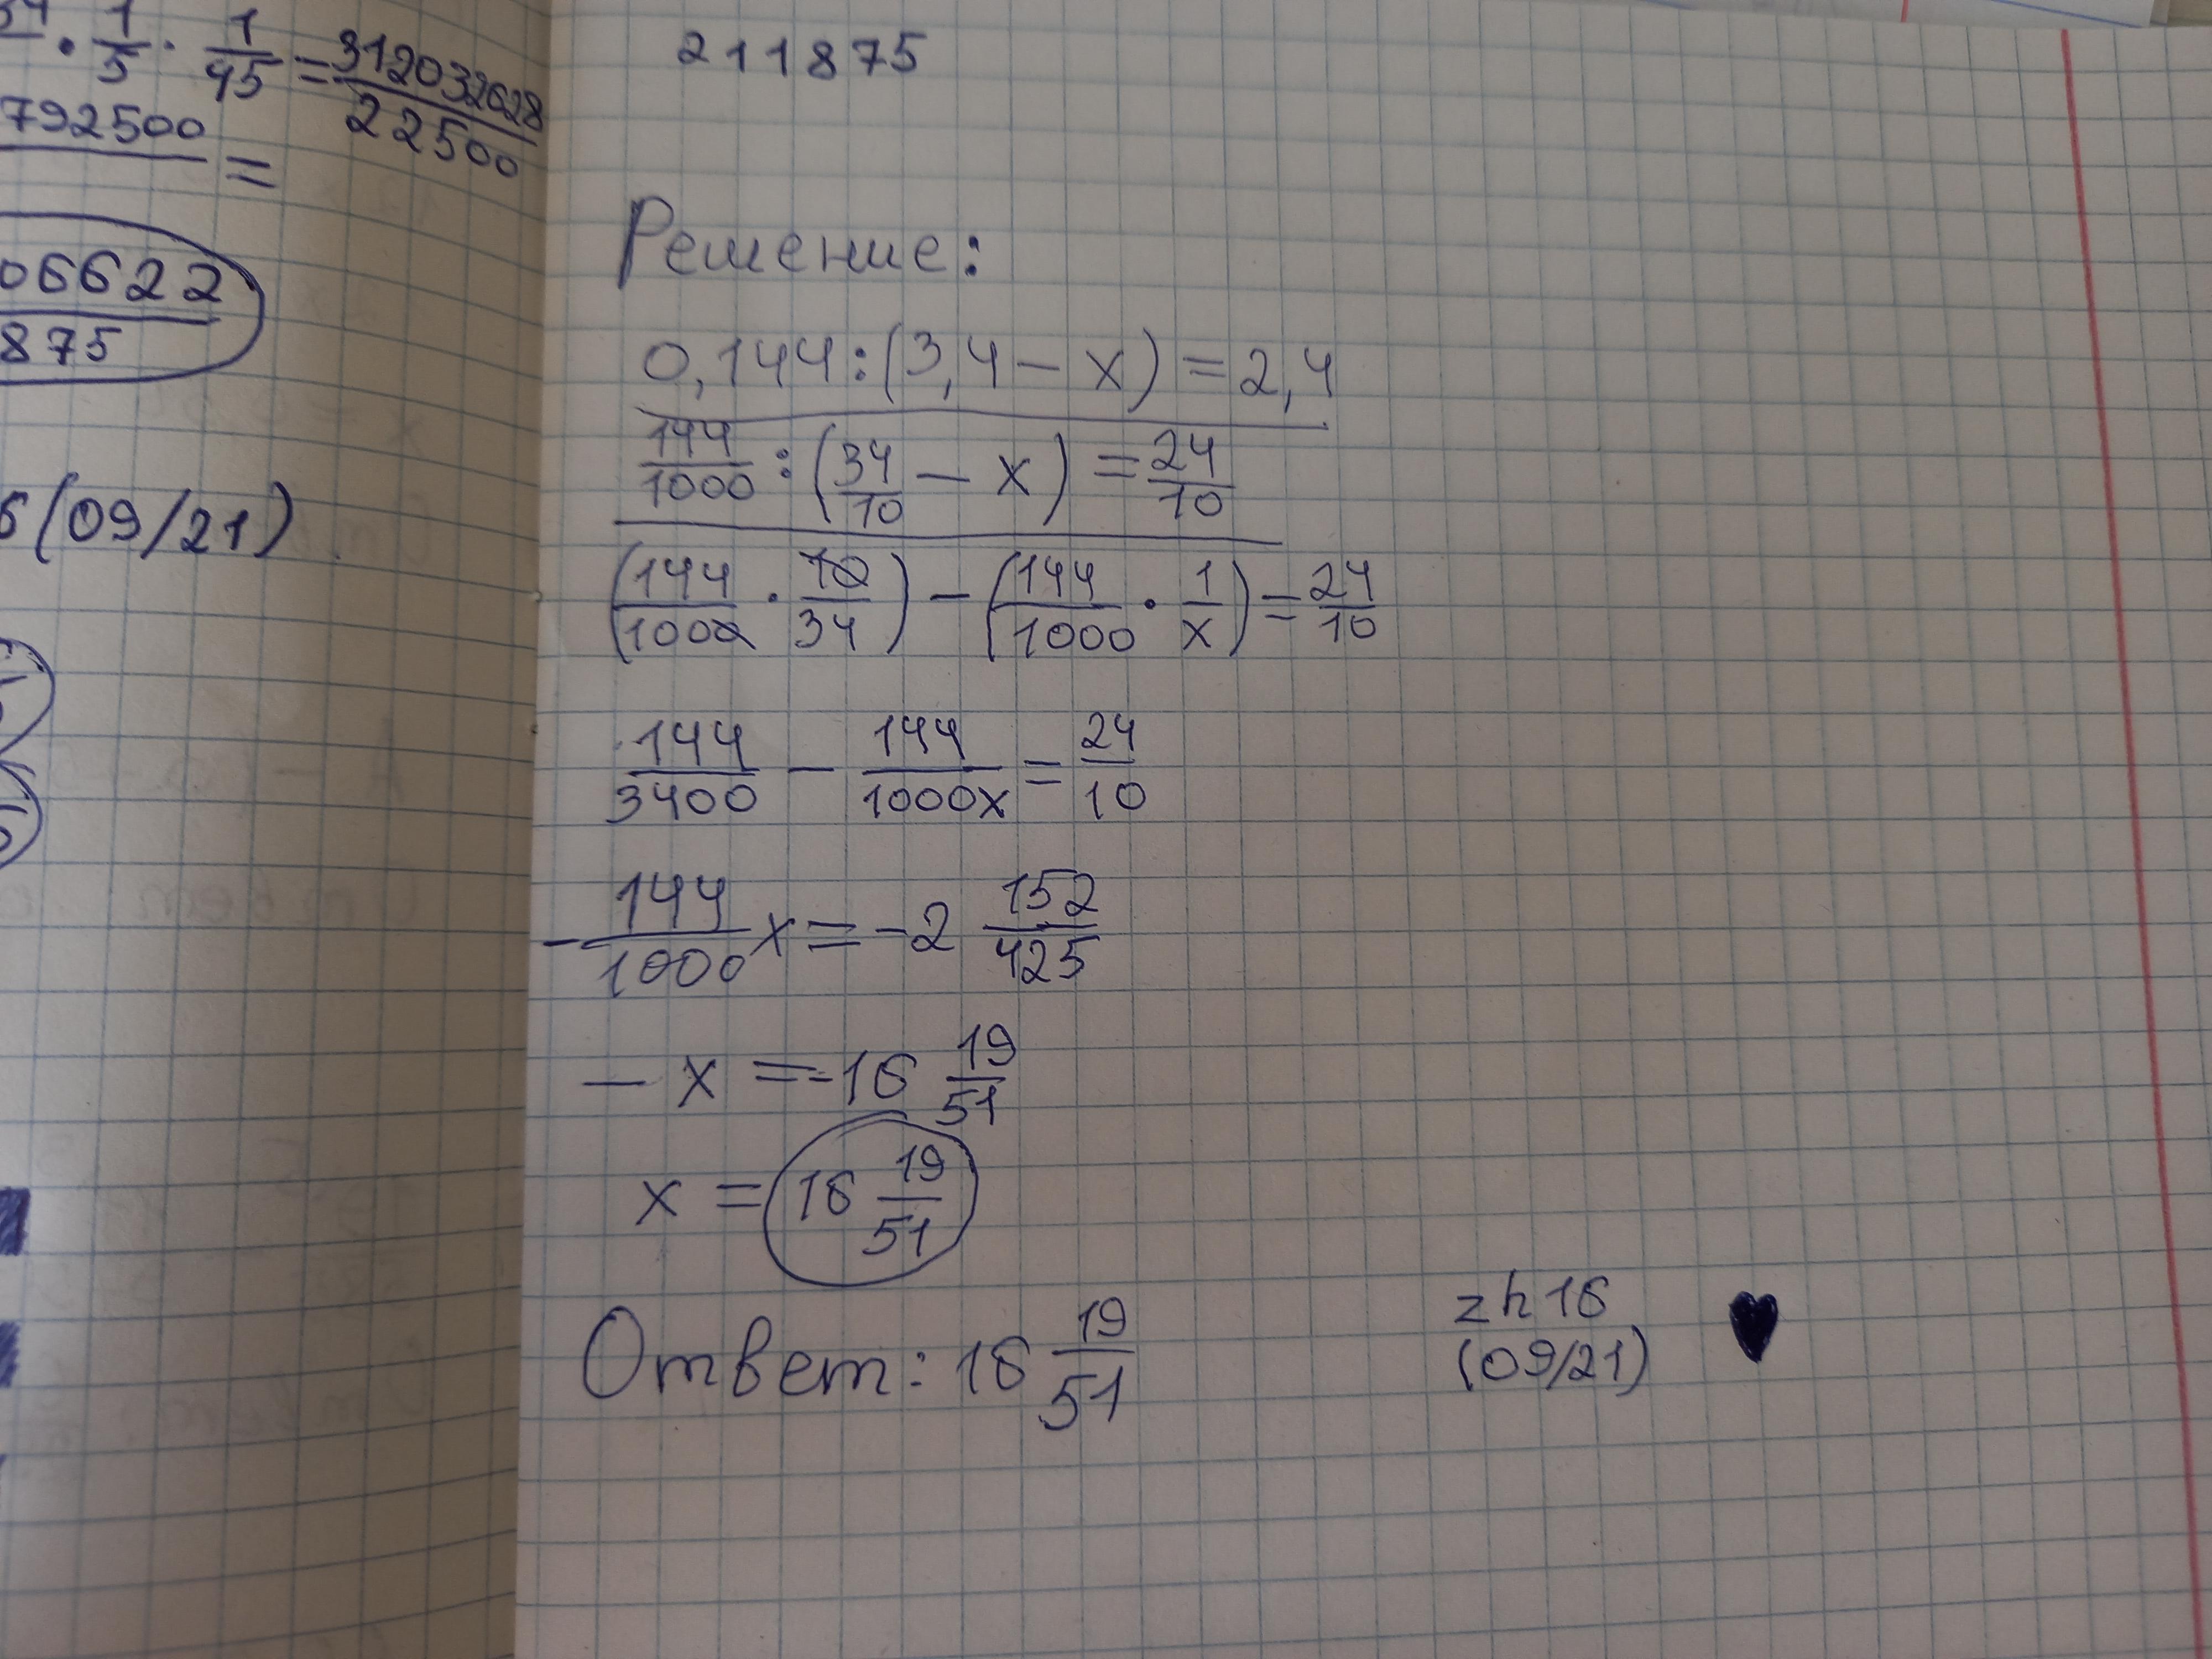 · 1/5 · 1/45 = 312032628/22500
792500 =
06622
875
6(09/21)
211875
Решение:
0,144:(3,4 - x) = 2,4
144/1000 : (34/10 - x) = 24/10
(144/1000 · 10/34) - (144/1000 · 1/x) = 24/10
144/3400 - 144/1000x = 24/10
-144/1000 x = -2 152/425
- x = -16 19/51
x = 16 19/51
Ответ: 16 19/51
zh16
(09/21)